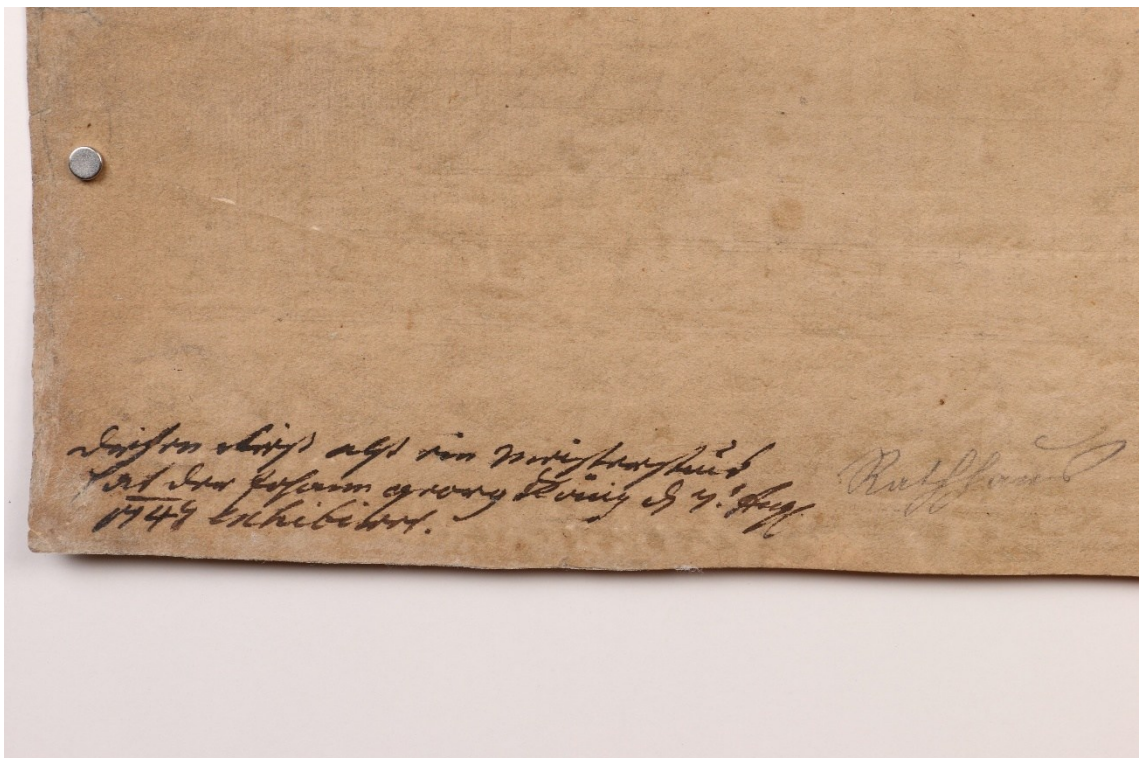 diesen Riss alß ein Meisterstuck
hat der Johann georg König d 7t Aug.
1747 Exhibiert.
Rathhaus